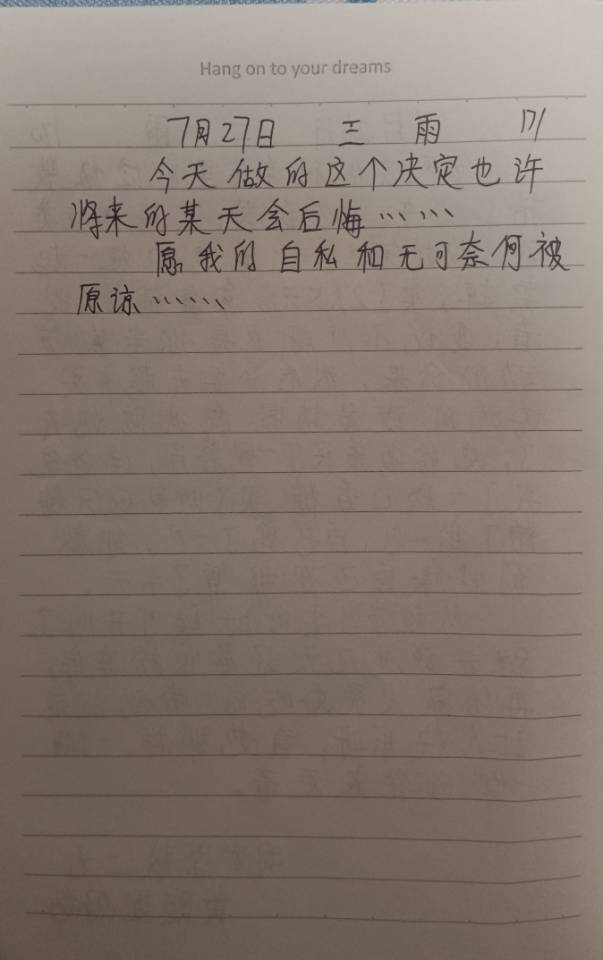 Hang on to your dreams
7月27日 三 雨 171
今天做的这个决定也许
将来的某天会后悔……
愿我的自私和无可奈何被
原谅……